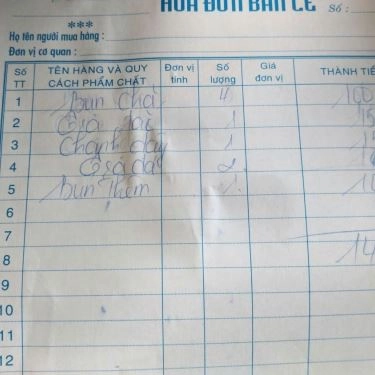 HÓA ĐƠN BÁN LẺ Số :
***
Họ tên người mua hàng :
Đơn vị cơ quan :
Số TT TÊN HÀNG VÀ QUY CÁCH PHẨM CHẤT Đơn vị tính Số lượng Giá đơn vị THÀNH TIỀ
1 Bún Chả 4 160
2 1 15
3 Chanh 1 15
4 2
5 bún thêm 1 10
6
7
8 14
9
10
11
12